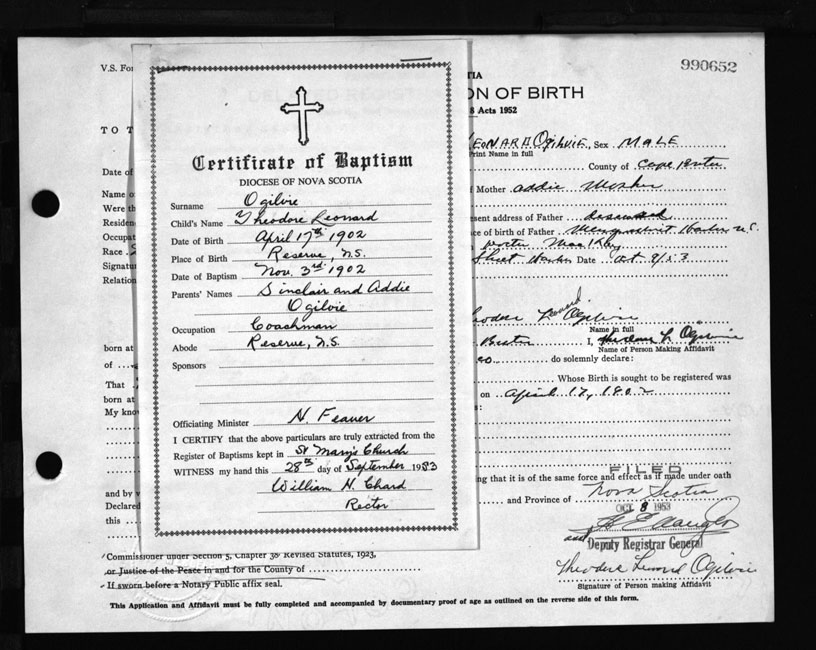 990652
V.S. For
TIA
ON OF BIRTH
Acts 1952
TO T
LEONARD Ogilvie, Sex MALE
Print Name in full
County of Cape Breton
Date of
Name o
of Mother Addie
Were th
Residen
present address of Father deceased
Occupat
ce of birth of Father
N.S.
Race
Signatu
Date Oct
Relation
Certificate of Baptism
DIOCESE OF NOVA SCOTIA
Surname Ogilvie
Child's Name Theodore Leonard
Date of Birth April 17th 1902
Place of Birth Reserve, N.S.
Date of Baptism Nov. 3rd 1902
Parents' Names Sinclair and Addie
Ogilvie
Occupation Coachman
Abode Reserve, N.S.
Sponsors
Officiating Minister N. Feaver
I CERTIFY that the above particulars are truly extracted from the
Register of Baptisms kept in St Mary's Church
WITNESS my hand this 28th day of September 1953
William H. Chard
Rector
odore Leonard Ogilvie
Name in full
born at
I, Theodore L Ogilvie
Name of Person Making Affidavit
of
do solemnly declare:
That
Whose Birth is sought to be registered was
born at
on April 17, 1902
My know
FILED
ing that it is of the same force and effect as if made under oath
and by v
and Province of Nova Scotia
Declared
OCT 8 1953
this
and
Deputy Registrar General
Commissioner under Section 5, Chapter 38 Revised Statutes, 1923,
or Justice of the Peace in and for the County of
If sworn before a Notary Public affix seal.
Theodore Leonard Ogilvie
Signature of Person making Affidavit
This Application and Affidavit must be fully completed and accompanied by documentary proof of age as outlined on the reverse side of this form.